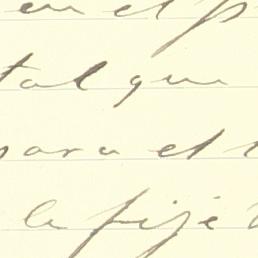 en el p
tal que
para el
le fijé